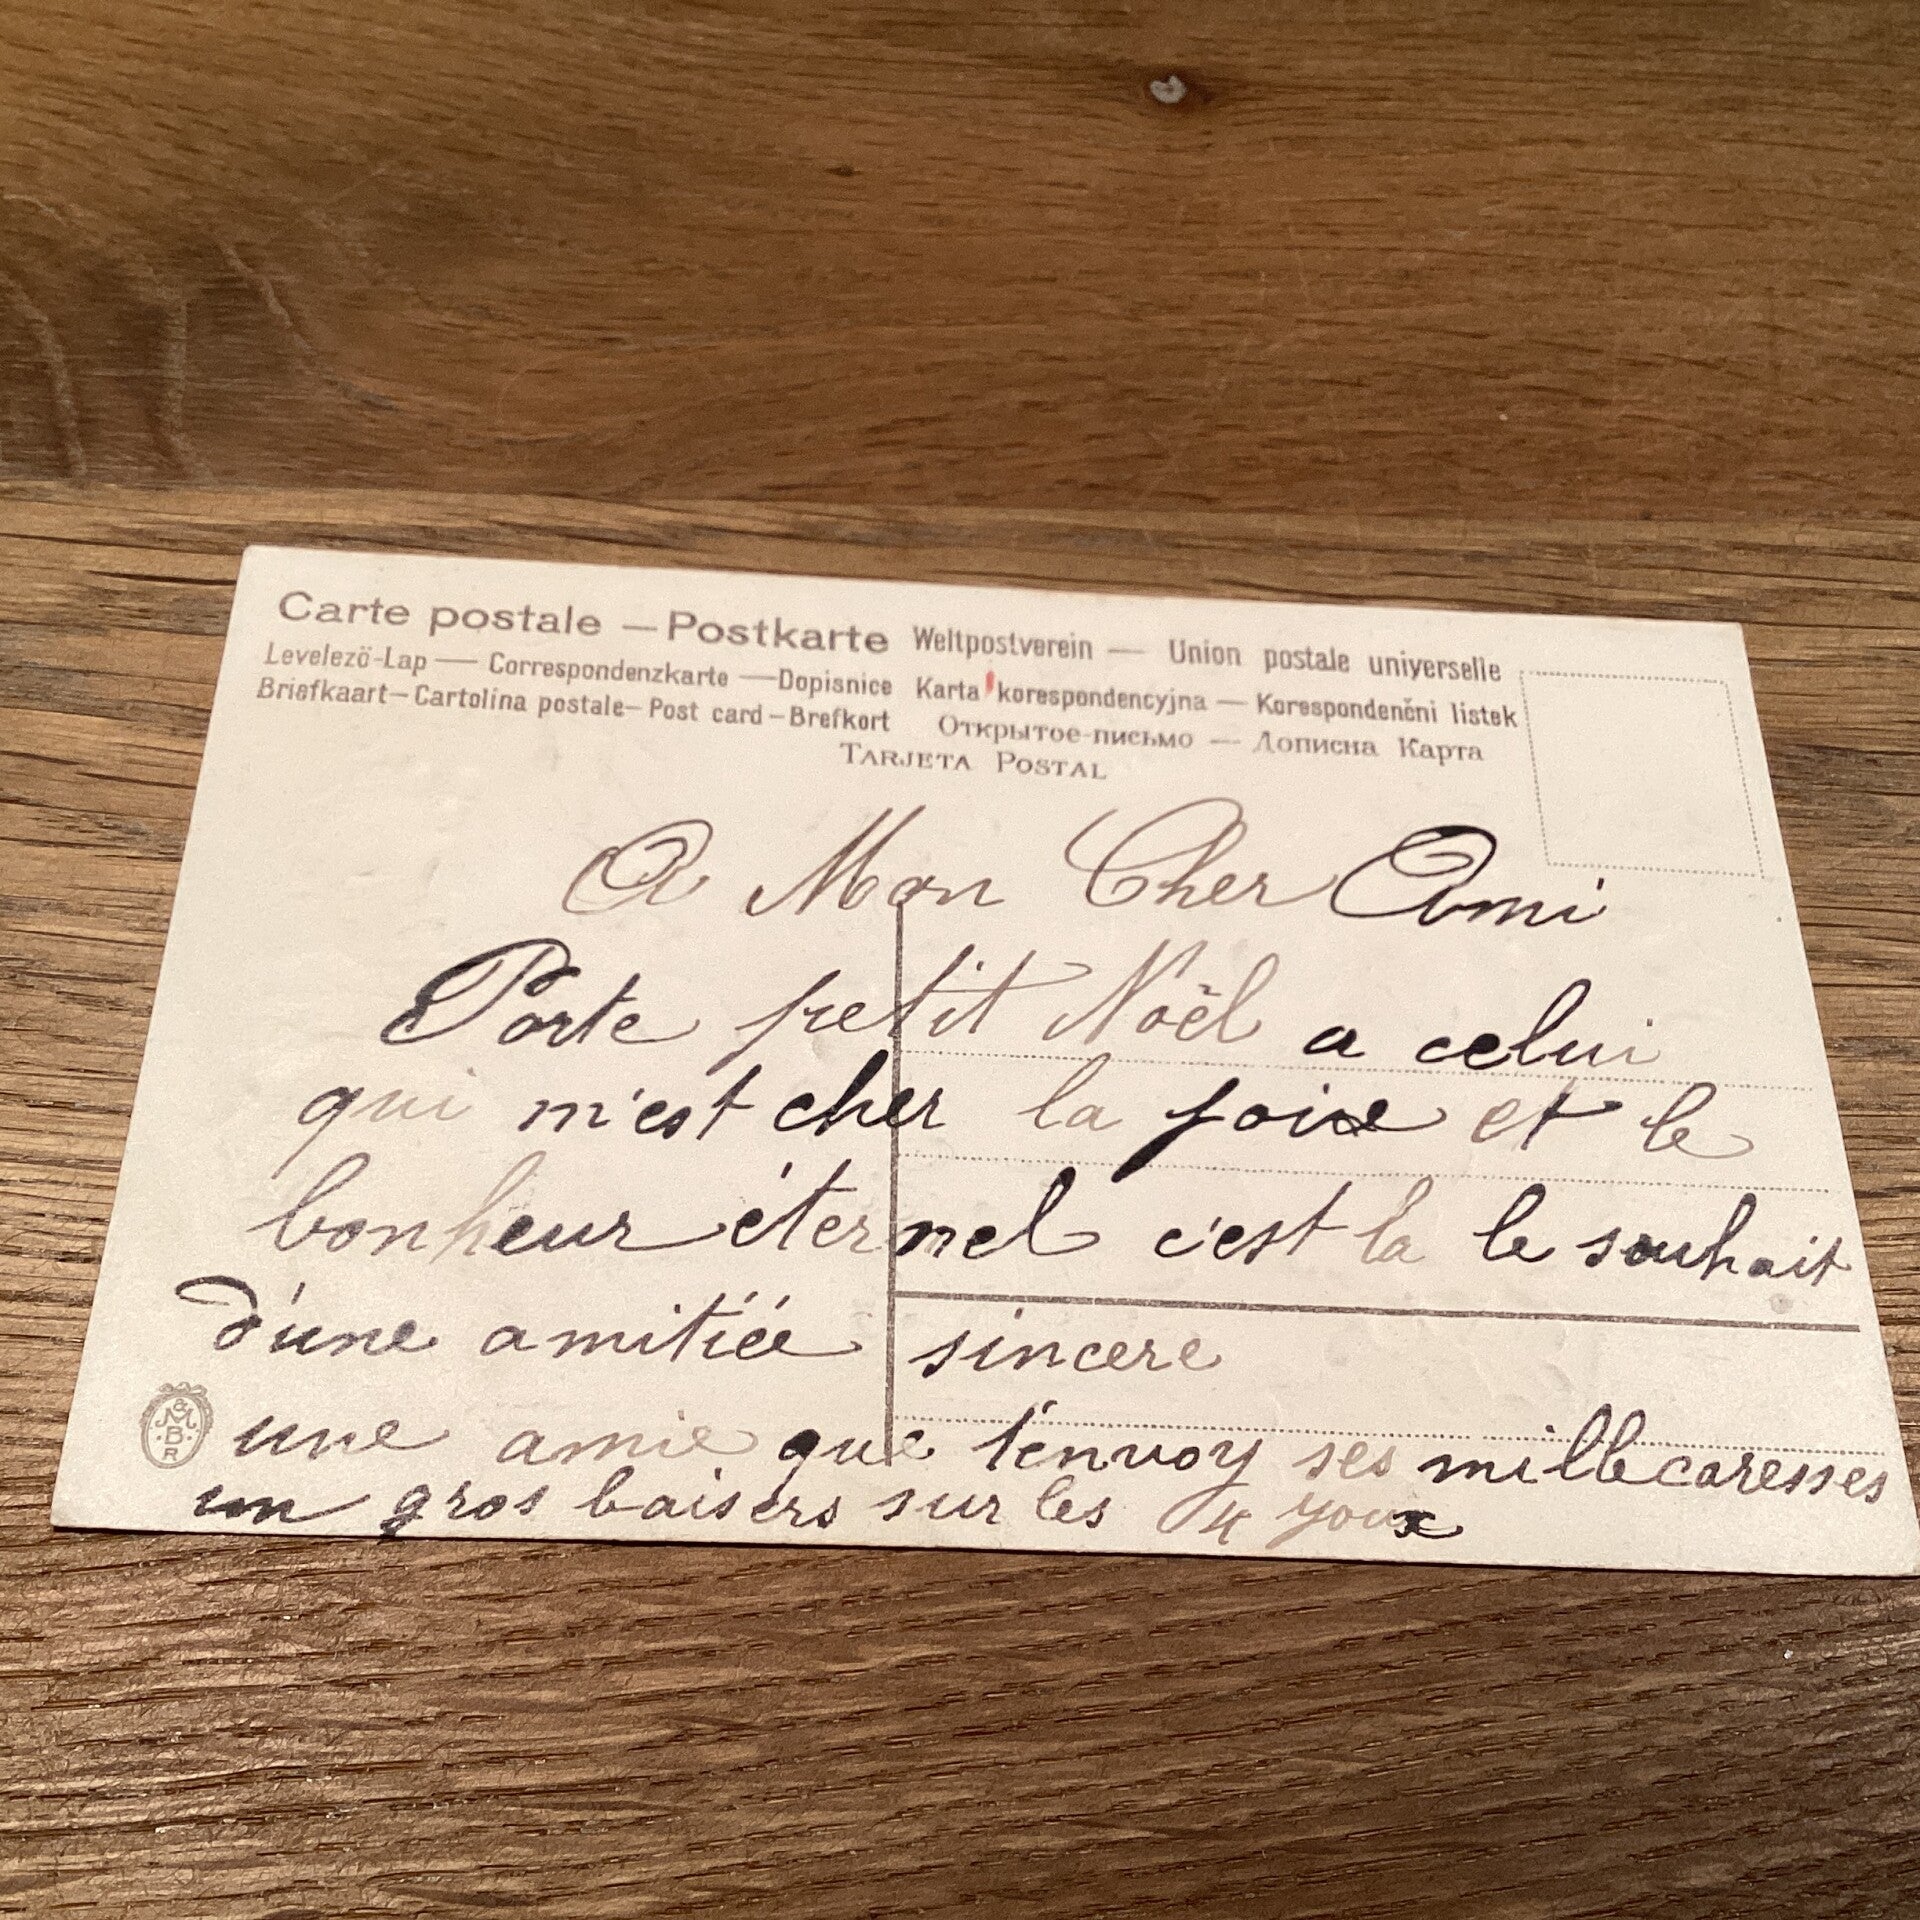 Carte postale — Postkarte Weltpostverein — Union postale universelle
Levelező-Lap — Correspondenzkarte — Dopisnice Karta korespondencyjna — Korespondenčni listek
Briefkaart – Cartolina postale – Post card – Brefkort Открытое-письмо — Дописна Карта
TARJETA POSTAL
A Mon Cher Ami
Porte petit Noël a celui
qui m'est cher la joie et le
bonheur éternel c'est la le souhait
d'une amitiée sincere
une amie que t'envoy ses mille caresses
un gros baisers sur les 4 youx
M & M
B
R